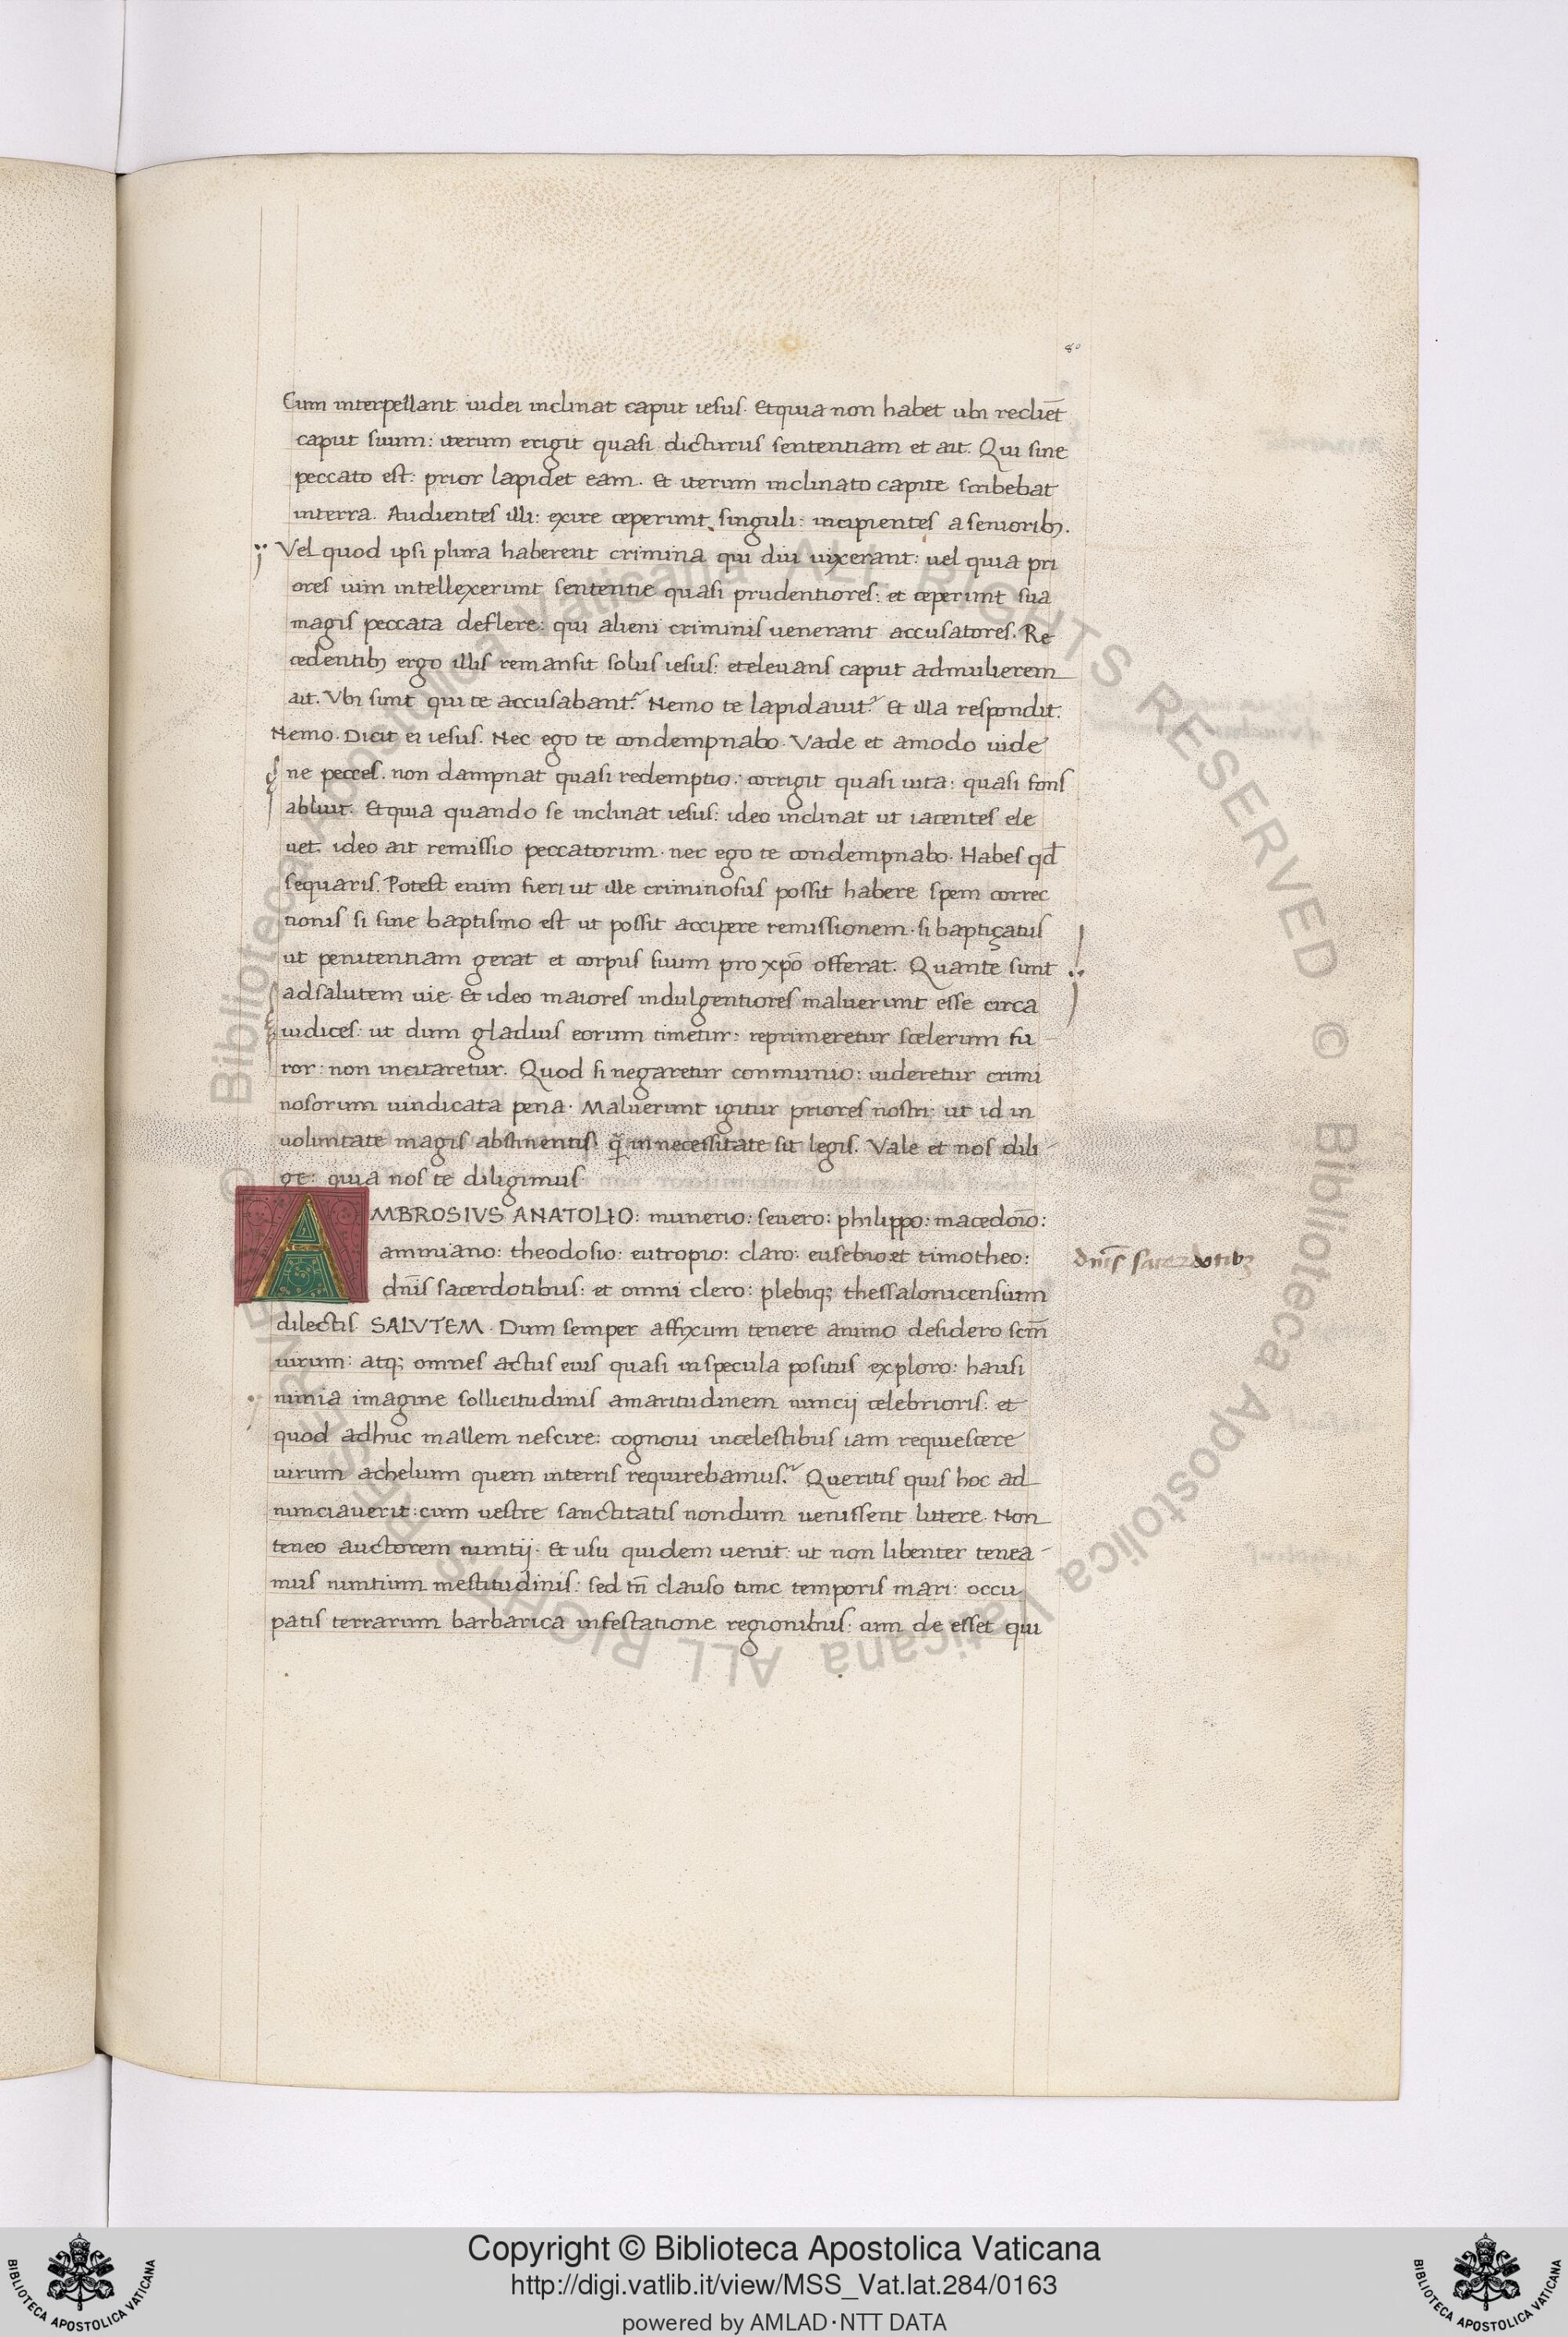 80
Cum interpellant iudei inclinat caput iesus. Et quia non habet ubi recliēt
caput suum: iterum erigit quasi dicturus sententiam et ait. Qui sine
peccato est: prior lapidet eam. Et iterum inclinato capite scribebat
interra. Audientes illi: exire ceperunt singuli: incipientes a seniorib;.
Vel quod ipsi plura haberent crimina qui diu uixerant: uel quia pri
ores uim intellexerunt sententie quasi prudentiores: et ceperunt sua
magis peccata deflere: qui alieni criminis uenerant accusatores. Re
cedentib; ergo illis remansit solus iesus: et eleuans caput ad mulierem
ait. Vbi sunt qui te accusabant? Nemo te lapidauit? Et illa respondit.
Nemo. Dicit ei iesus. Nec ego te condempnabo. Vade et amodo uide
ne pecces. non dampnat quasi redemptio: corrigit quasi uita: quasi fons
abluit. Et quia quando se inclinat iesus: ideo inclinat ut iacentes ele
uet. ideo ait remissio peccatorum. nec ego te condempnabo. Habes qd̄
sequaris. Potest enim fieri ut ille criminosus possit habere spem correc
tionis si sine baptismo est ut possit accipere remissionem. si baptiçatus
ut penitentiam gerat et corpus suum pro xp̄o offerat. Quante sunt
ad salutem uie. Et ideo maiores indulgentiores maluerunt esse circa
iudices: ut dum gladius eorum timetur: reprimeretur scelerum fu
ror: non incitaretur. Quod si negaretur conmunio: uideretur crimi
nosorum uindicata pena. Maluerunt igitur priores nostri: ut id in
uoluntate magis abstinentis: q̄ in necessitate sit legis. Vale et nos dili
ge: quia nos te diligimus.
AMBROSIVS ANATOLIO: munerio: seuero: philippo: macedoīo:
ammiano: theodosio: eutropio: claro: eusebio: et timotheo:
dn̄is sacerdotibus: et omni clero: plebiq; thessalonicensium
dn̄is sacerdotib;
dilectis SALVTEM. Dum semper affixum tenere animo desidero scm̄
uirum: atq; omnes actus eius quasi in specula positus exploro: hausi
nimia imagine sollicitudinis amaritudinem nuncij celebrioris: et
quod adhuc mallem nescire: cognoui in celestibus iam requiescere
uirum achelium quem in terris requirebamus? Queritis quis hoc ad
nunciauerit: cum uestre sanctitatis nondum uenissent littere. Non
teneo auctorem nuntij. Et usu quidem uenit: ut non libenter tenea
mus nuntium mestitudinis: sed tn̄ clauso tunc temporis mari: occu
patis terrarum barbarica infestatione regionibus: cum de esset qui
© Biblioteca Apostolica Vaticana ALL RIGHTS RESERVED © Biblioteca Apostolica Vaticana ALL RIGHTS RESERVED
Copyright © Biblioteca Apostolica Vaticana
http://digi.vatlib.it/view/MSS_Vat.lat.284/0163
powered by AMLAD·NTT DATA
BIBLIOTECA APOSTOLICA VATICANA
BIBLIOTECA APOSTOLICA VATICANA